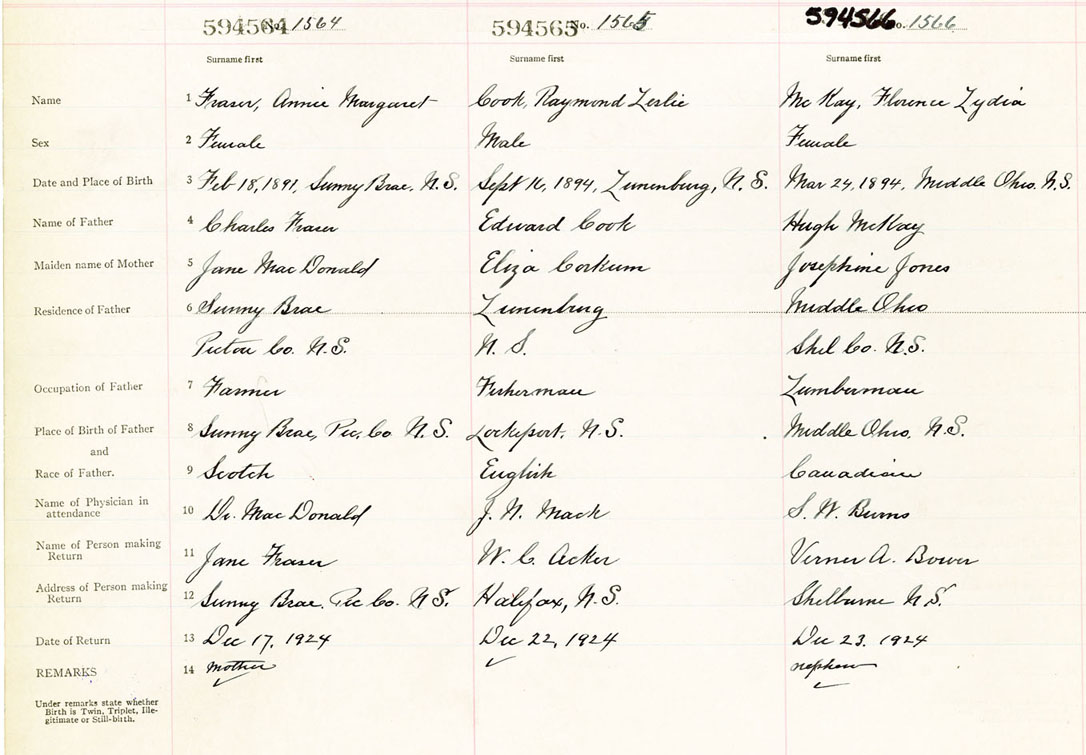 594564 No. 1564 594565 No. 1565 594566 No. 1566
Surname first Surname first Surname first
Name 1 Fraser, Annie Margaret Cook, Raymond Leslie McKay, Florence Lydia
Sex 2 Female Male Female
Date and Place of Birth 3 Feb 18, 1891, Sunny Brae, N.S. Sept 16, 1894, Lunenburg, N.S. Mar 24, 1894, Middle Ohio, N.S.
Name of Father 4 Charles Fraser Edward Cook Hugh McKay
Maiden name of Mother 5 Jane MacDonald Eliza Corkum Josephine Jones
Residence of Father 6 Sunny Brae Lunenburg Middle Ohio
Pictou Co. N.S. N. S. Shel Co. N.S.
Occupation of Father 7 Farmer Fisherman Lumberman
Place of Birth of Father 8 Sunny Brae, Pic. Co N.S. Lockeport, N.S. Middle Ohio, N.S.
and
Race of Father. 9 Scotch English Canadian
Name of Physician in
attendance 10 Dr. MacDonald J. N. Mack S. W. Burns
Name of Person making
Return 11 Jane Fraser W. C. Acker Verner A. Bower
Address of Person making
Return 12 Sunny Brae, Pic Co. N.S. Halifax, N.S. Shelburne N.S.
Date of Return 13 Dec 17, 1924 Dec 22, 1924 Dec 23, 1924
REMARKS 14 mother nephew
Under remarks state whether
Birth is Twin, Triplet, Ille-
gitimate or Still-birth.